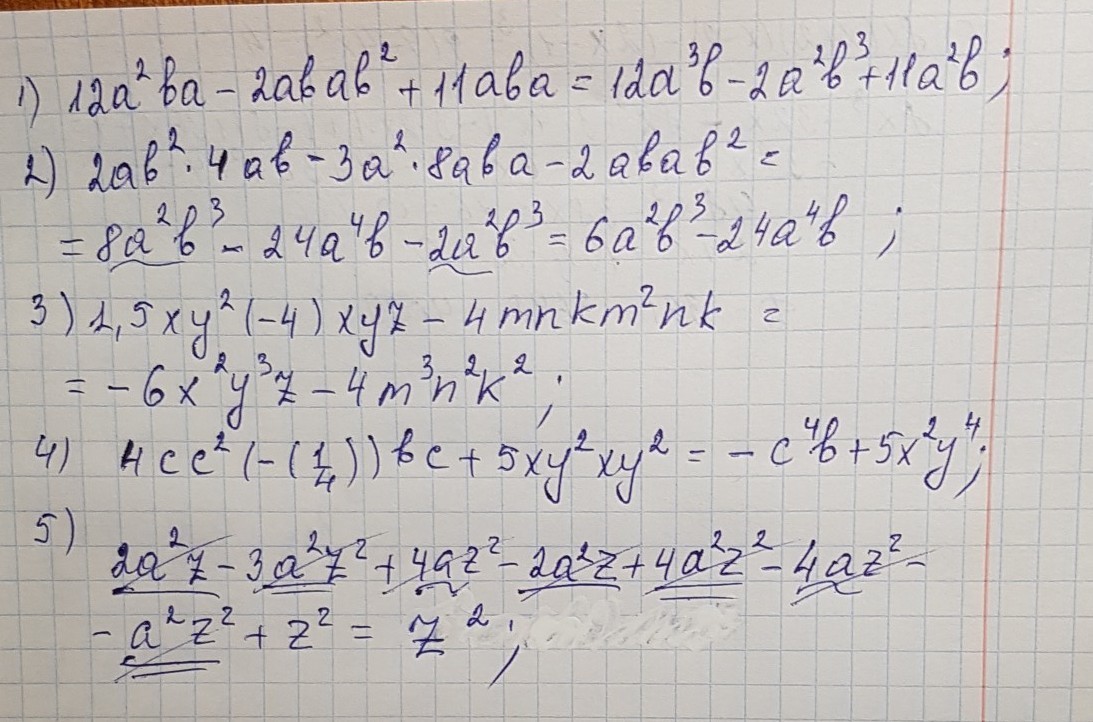 1) 12a²ba - 2abab² + 11aba = 12a³b - 2a²b³ + 11a²b;
2) 2ab² · 4ab - 3a² · 8aba - 2abab² =
= 8a²b³ - 24a⁴b - 2a²b³ = 6a²b³ - 24a⁴b ;
3) 1,5xy²(-4)xyz - 4mnkm²nk =
= -6x²y³z - 4m³n²k²;
4) 4cc²(-(1/4))bc + 5xy²xy² = -c⁴b + 5x²y⁴;
5)
2a²z - 3a²z² + 4az² - 2a²z + 4a²z² - 4az² -
- a²z² + z² = z²;